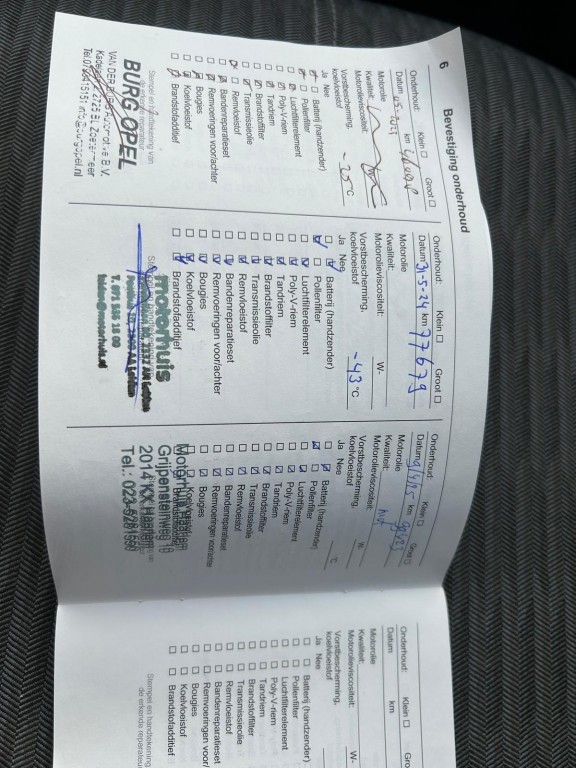 6 Bevestiging onderhoud
Onderhoud: Klein Groot
Datum km
Motorolie
Kwaliteit:
Motorolieviscositeit:
Vorstbescherming,
koelvloeistof °C
Ja Nee
Batterij (handzender)
Pollenfilter
Luchtfilterelement
Poly-V-riem
Tandriem
Brandstoffilter
Transmissieolie
Remvloeistof
Bandenreparatieset
Remvoeringen voor/achter
Bougies
Koelvloeistof
Brandstofadditief
Stempel en handtekening van
de erkende reparateur
BURG OPEL
Onderhoud: Klein Groot
Datum 31-5-24 km 77679
Motorolie
Kwaliteit: W-
Motorolieviscositeit:
Vorstbescherming,
koelvloeistof -43 °C
Ja Nee
Batterij (handzender)
Pollenfilter
Luchtfilterelement
Poly-V-riem
Tandriem
Brandstoffilter
Transmissieolie
Remvloeistof
Bandenreparatieset
Remvoeringen voor/achter
Bougies
Koelvloeistof
Brandstofadditief
motorhuis
Onderhoud: Klein Groot
Datum km
Motorolie
Kwaliteit:
Motorolieviscositeit:
Vorstbescherming,
koelvloeistof °C
Ja Nee
Batterij (handzender)
Pollenfilter
Luchtfilterelement
Poly-V-riem
Tandriem
Brandstoffilter
Transmissieolie
Remvloeistof
Bandenreparatieset
Remvoeringen voor/achter
Bougies
Koelvloeistof
Motorhuis Haarlem
Grijpensteinweg
2014 KX Haarlem
Tel.: 023-5281550
Onderhoud: Klein
Datum km
Motorolie
Kwaliteit: W-
Motorolieviscositeit:
Vorstbescherming,
koelvloeistof
Ja Nee
Batterij (handzender)
Pollenfilter
Luchtfilterelement
Poly-V-riem
Tandriem
Brandstoffilter
Transmissieolie
Remvloeistof
Bandenreparatieset
Remvoeringen voor/
Bougies
Koelvloeistof
Brandstofadditief
Stempel en handtekening
de erkende reparateur